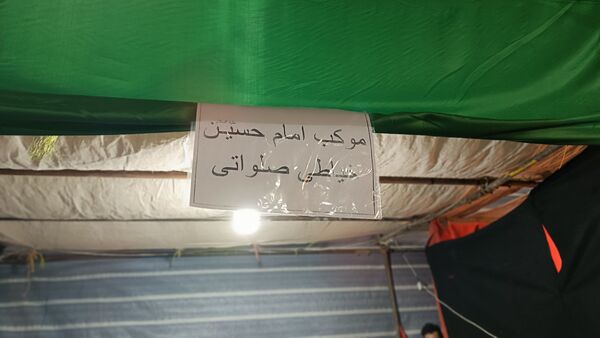 موکب امام حسین
خیاطی صلواتی